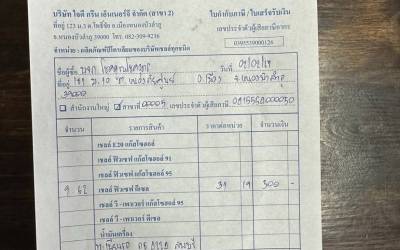 บริษัท ไอดี กรีน เอ็นเนอร์จี จำกัด (สาขา 2)
ที่อยู่ 123 ม.3 ต.โพธิ์ชัย อ.เมืองหนองบัวลำภู
จ.หนองบัวลำภู 39000 โทร. 082-309-9216
ใบกำกับภาษี / ใบเสร็จรับเงิน
เลขประจำตัวผู้เสียภาษีอากร
0395559000126
จำหน่าย : ผลิตภัณฑ์ปิโตรเลียมของบริษัทเชลล์ทุกชนิด
ชื่อผู้ซื้อ บจก. วันที่
ที่อยู่ อ.เมือง จ.หนองบัวลำภู
39000
สำนักงานใหญ่ สาขาที่ 00005 เลขประจำตัวผู้เสียภาษี
จำนวน รายการสินค้า ราคาต่อหน่วย จำนวนเงิน
เชลล์ E20 แก๊สโซฮอล์
เชลล์ ฟิวเซฟ แก๊สโซฮอล์ 91
เชลล์ ฟิวเซฟ แก๊สโซฮอล์ 95
9 62 เชลล์ ฟิวเซฟ ดีเซล 31 19 300 -
เชลล์ วี - เพาเวอร์ แก๊สโซฮอล์ 95
เชลล์ วี - เพาเวอร์ ดีเซล
น้ำมันเครื่อง